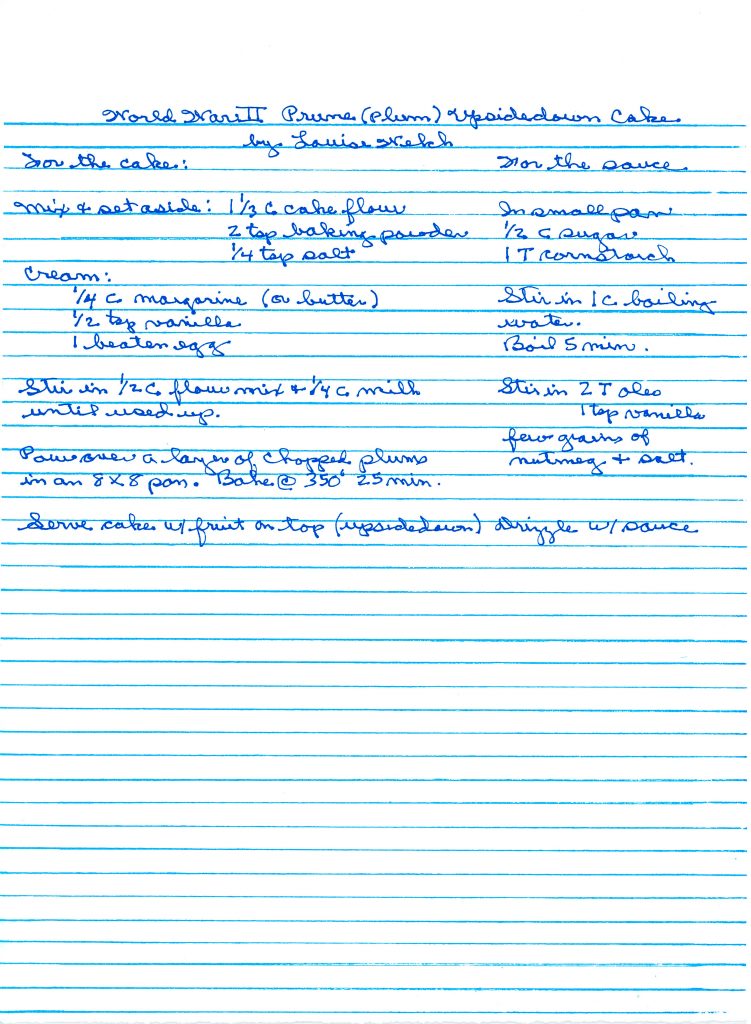 World War II Prune (Plum) Upsidedown Cake
by Louise Welch
For the cake:
Mix & set aside: 1 1/3 c cake flour
2 tsp baking powder
1/4 tsp salt
Cream:
1/4 c margarine (or butter)
1/2 tsp vanilla
1 beaten egg
Stir in 1/2 c flour mix & 1/4 c milk
until used up.
Pour over a layer of chopped plums
in an 8x8 pan. Bake @ 350° 25 min.
For the sauce
In small pan
1/2 c sugar
1 T cornstarch
Stir in 1 c boiling
water.
Boil 5 min.
Stir in 2 T oleo
1 tsp vanilla
few grains of
nutmeg & salt.
Serve cake w/ fruit on top (upsidedown) Drizzle w/ sauce